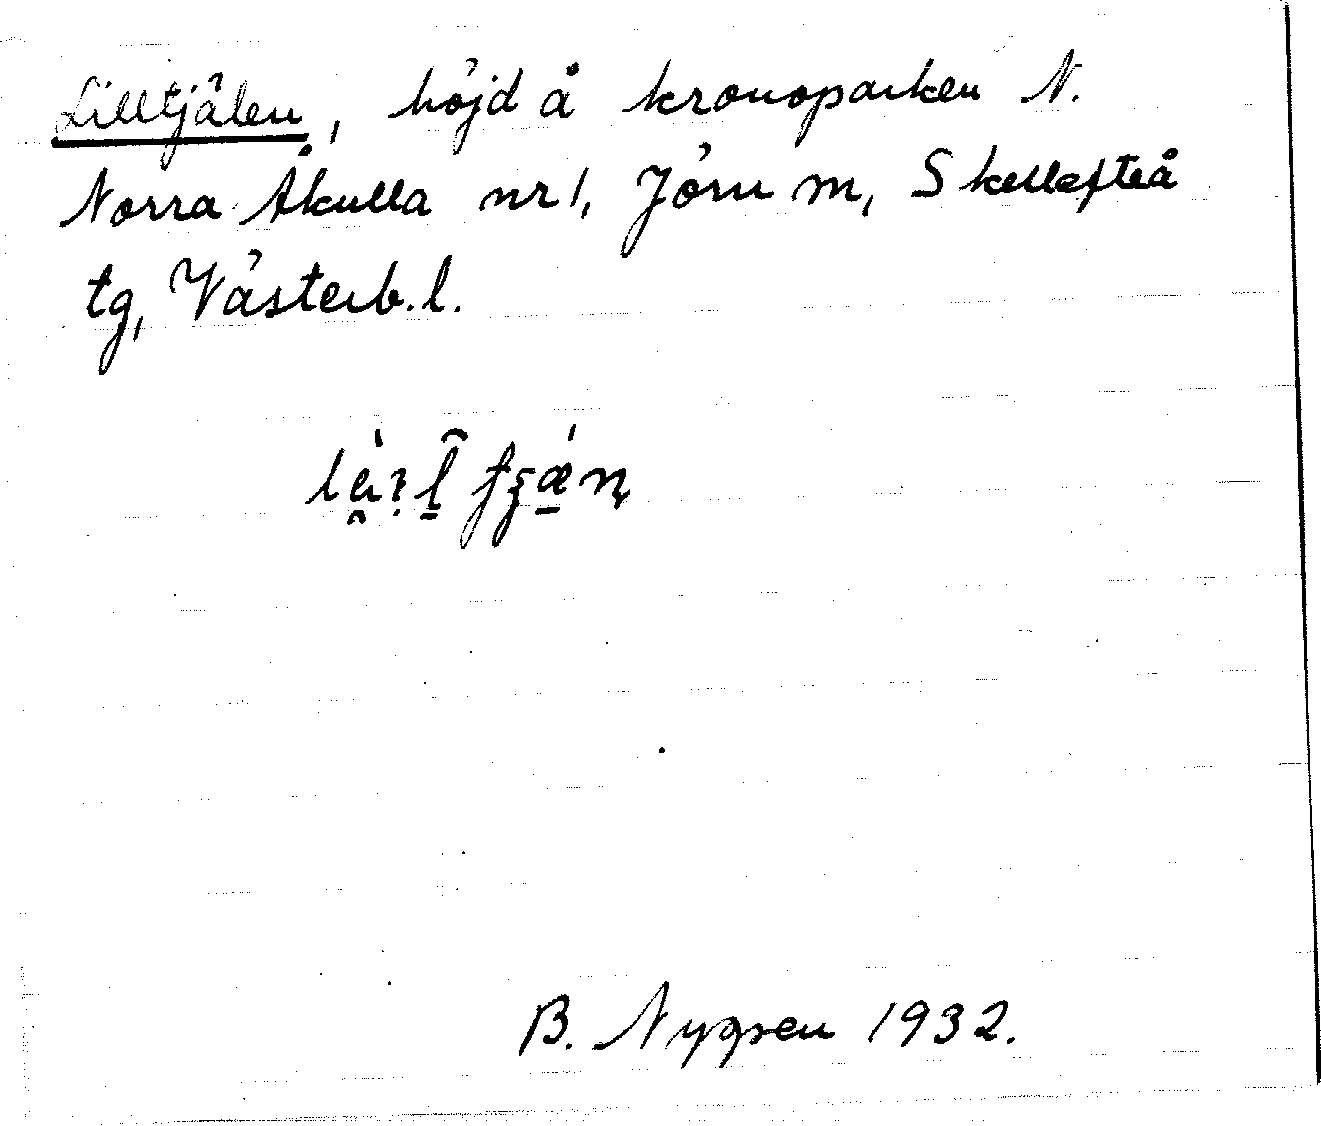 Lilltjälen, höjd å kronoparken N.
Norra Åkulla nr 1, Jörn sn, Skellefteå
tg, Västerb.l.
B. Nygren 1932.